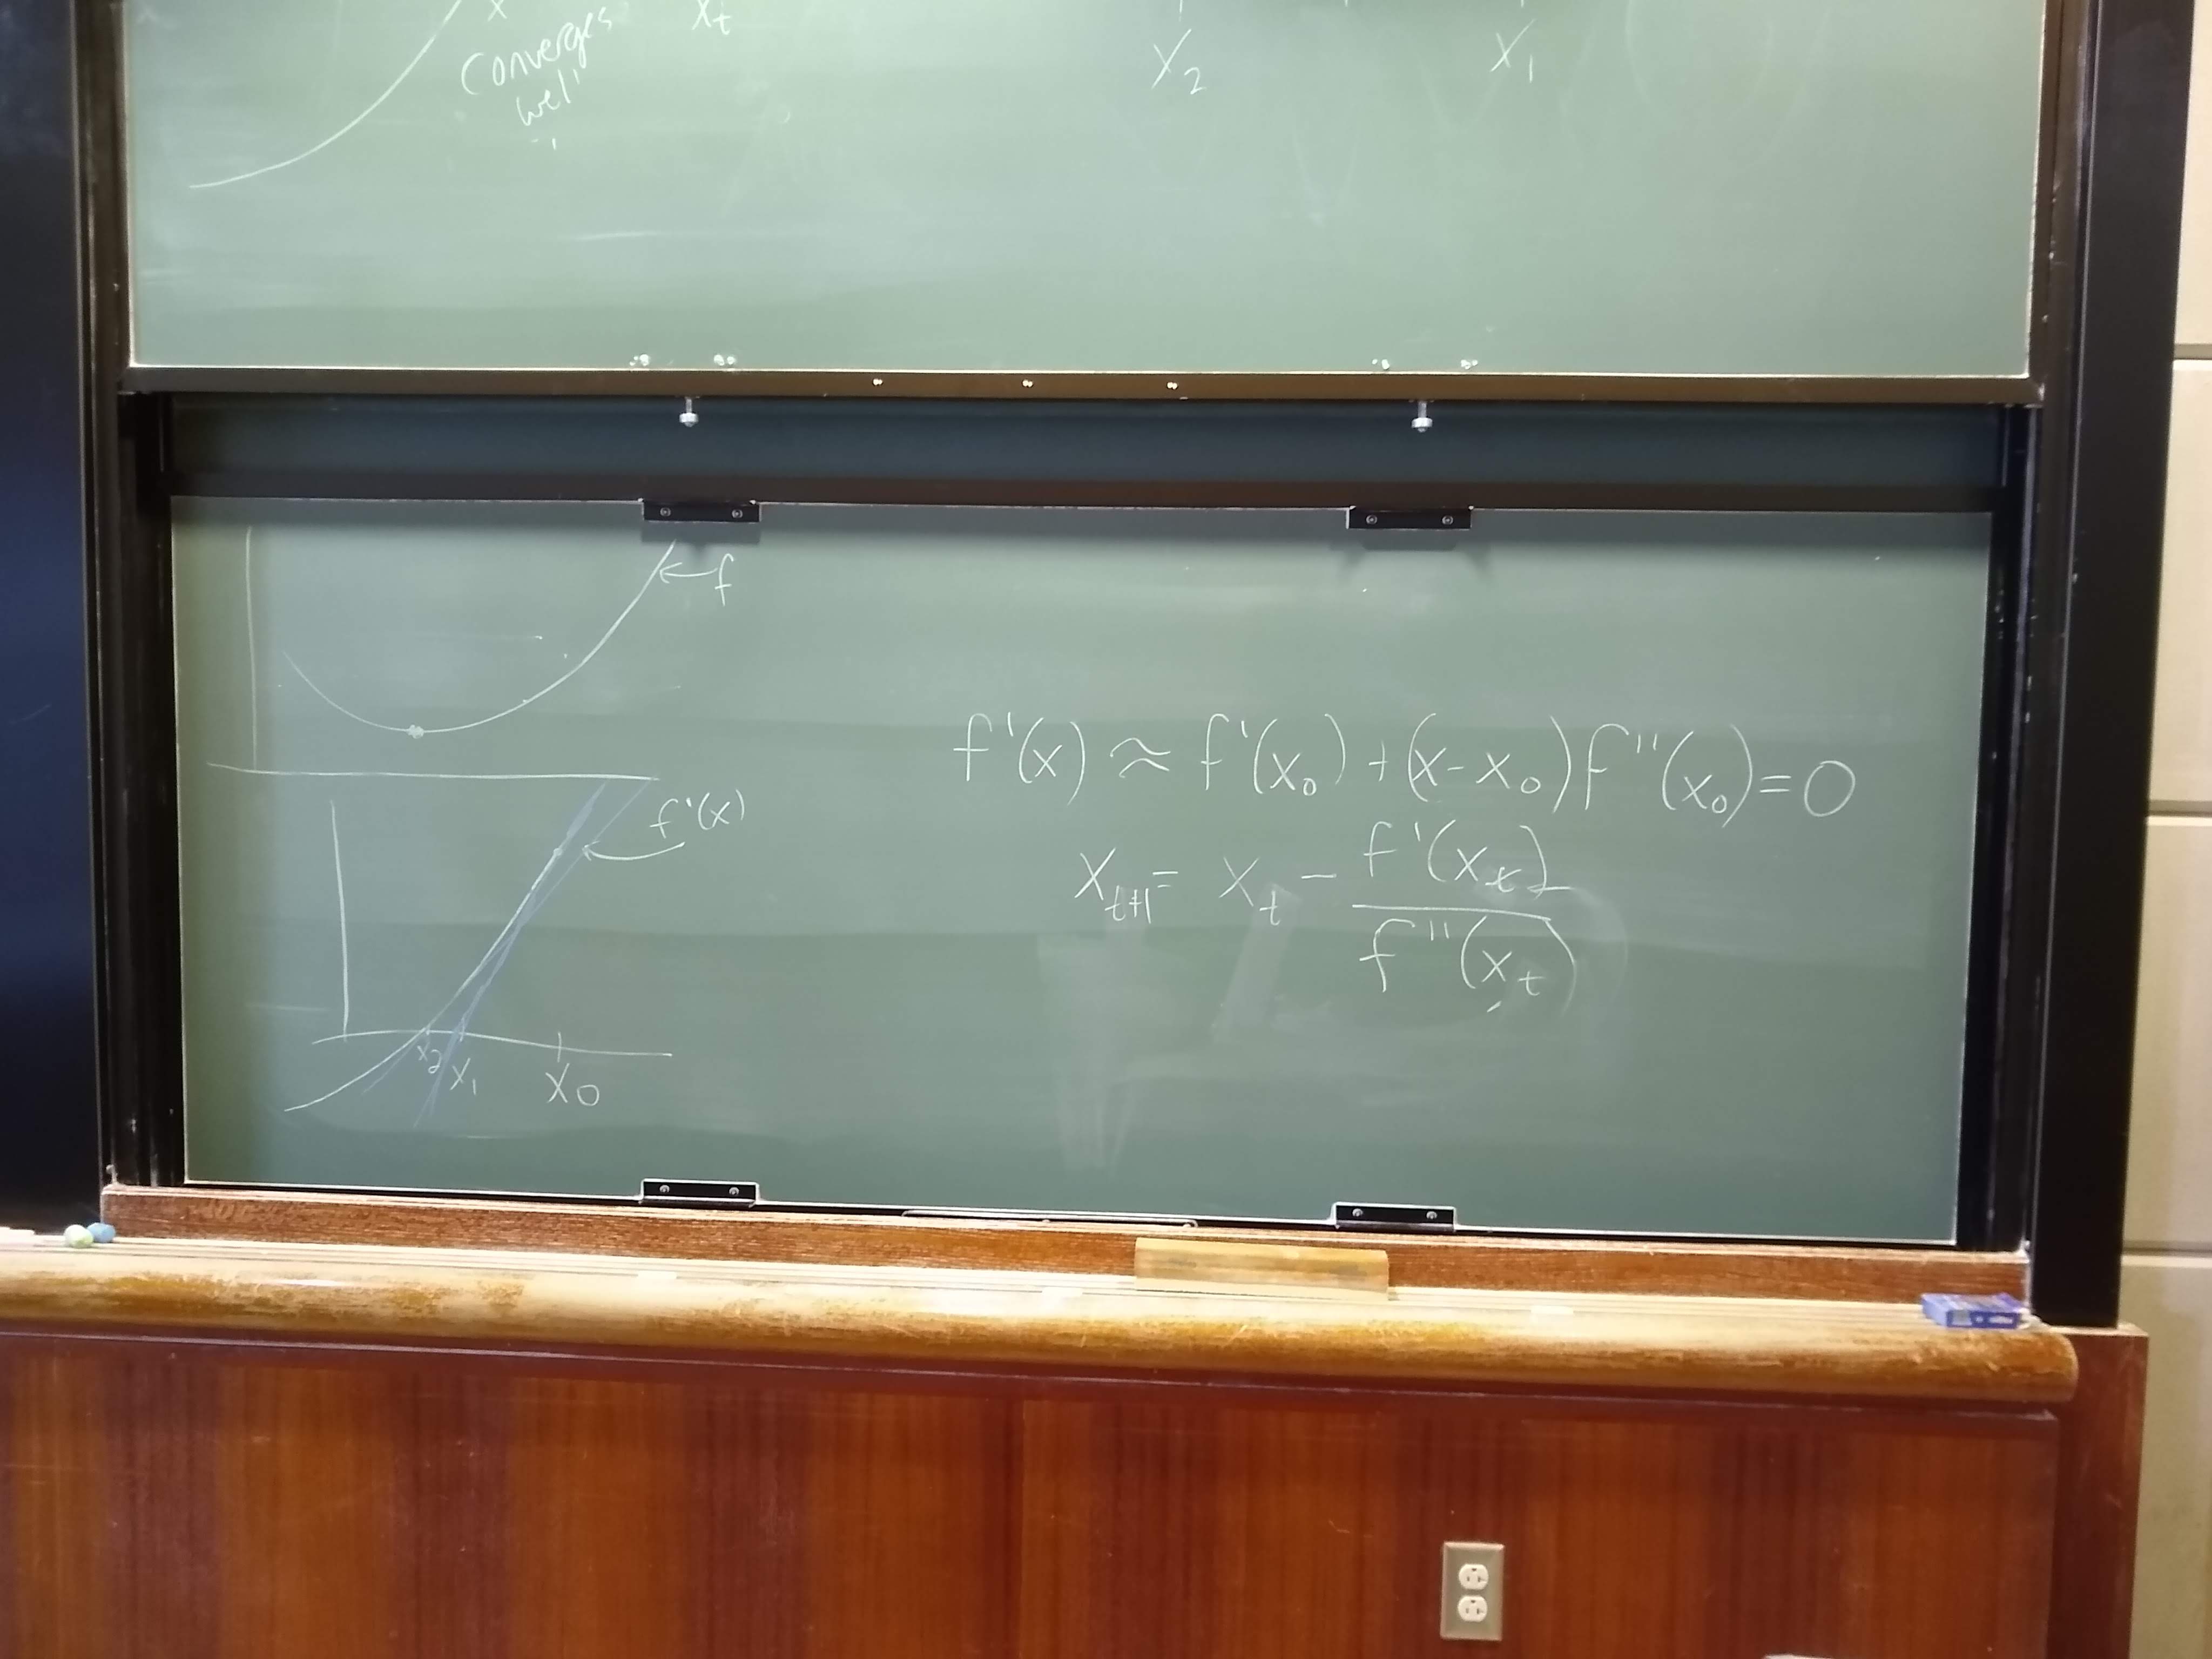 x x_t
Converges
well
x_2 x_1
f
f'(x)
x_2 x_1 x_0
f'(x) ≈ f'(x_0) + (x - x_0) f''(x_0) = 0
x_{t+1} = x_t - f'(x_t) / f''(x_t)